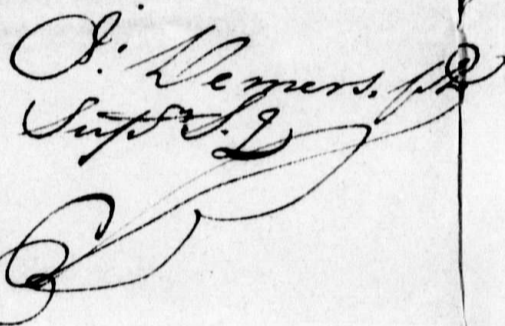 J. Demers. ptre
Supr S. J.